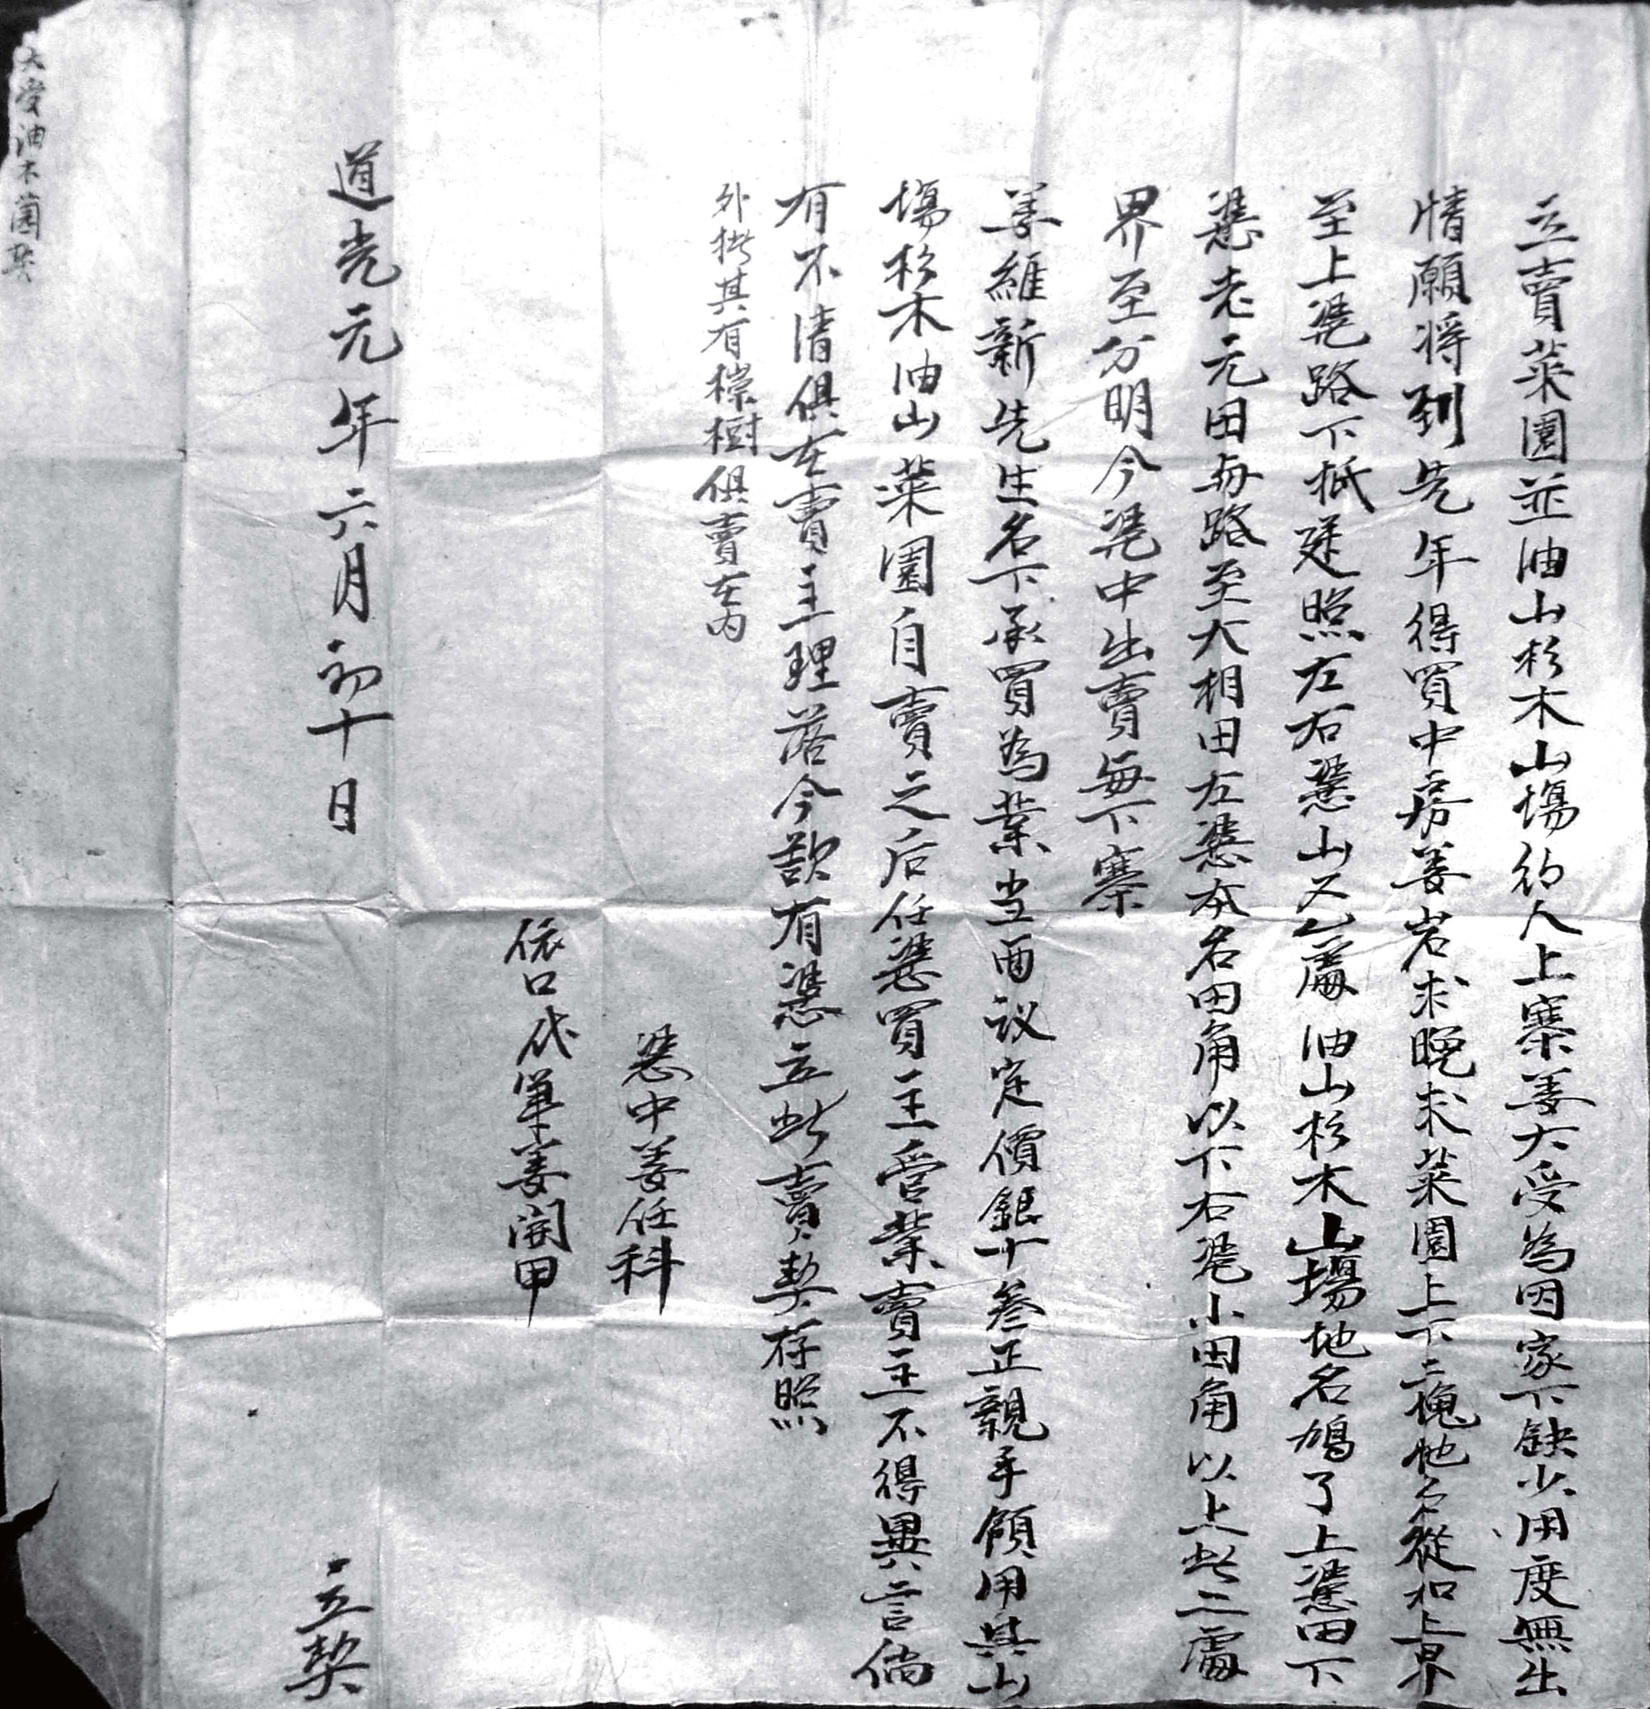 立賣菜園並油山杉木山塲約人上寨姜大受為因家下缺少用度無出
情願將到先年得買中房姜岩求晚求菜園上下二槐地名從和上界
至上凴路下抵廷照左右慿山又乙處油山杉木山塲地名鳩了上慿田下
慿老元田毎路至大相田左慿本名田角以下右凴小田角以上此二處
界至分明今凴中出賣毎下寨
姜維新先生名下承買為業当面议定價銀十叁正親手領用其山
塲杉木油山菜園自賣之后任慿買主管業賣主不得異言倘
有不清俱在賣主理落今欲有慿立此賣契存照
外批其有樣樹俱賣在内
慿中姜任科
依口代筆姜開甲
道光元年六月初十日 立契
大受油木菌契